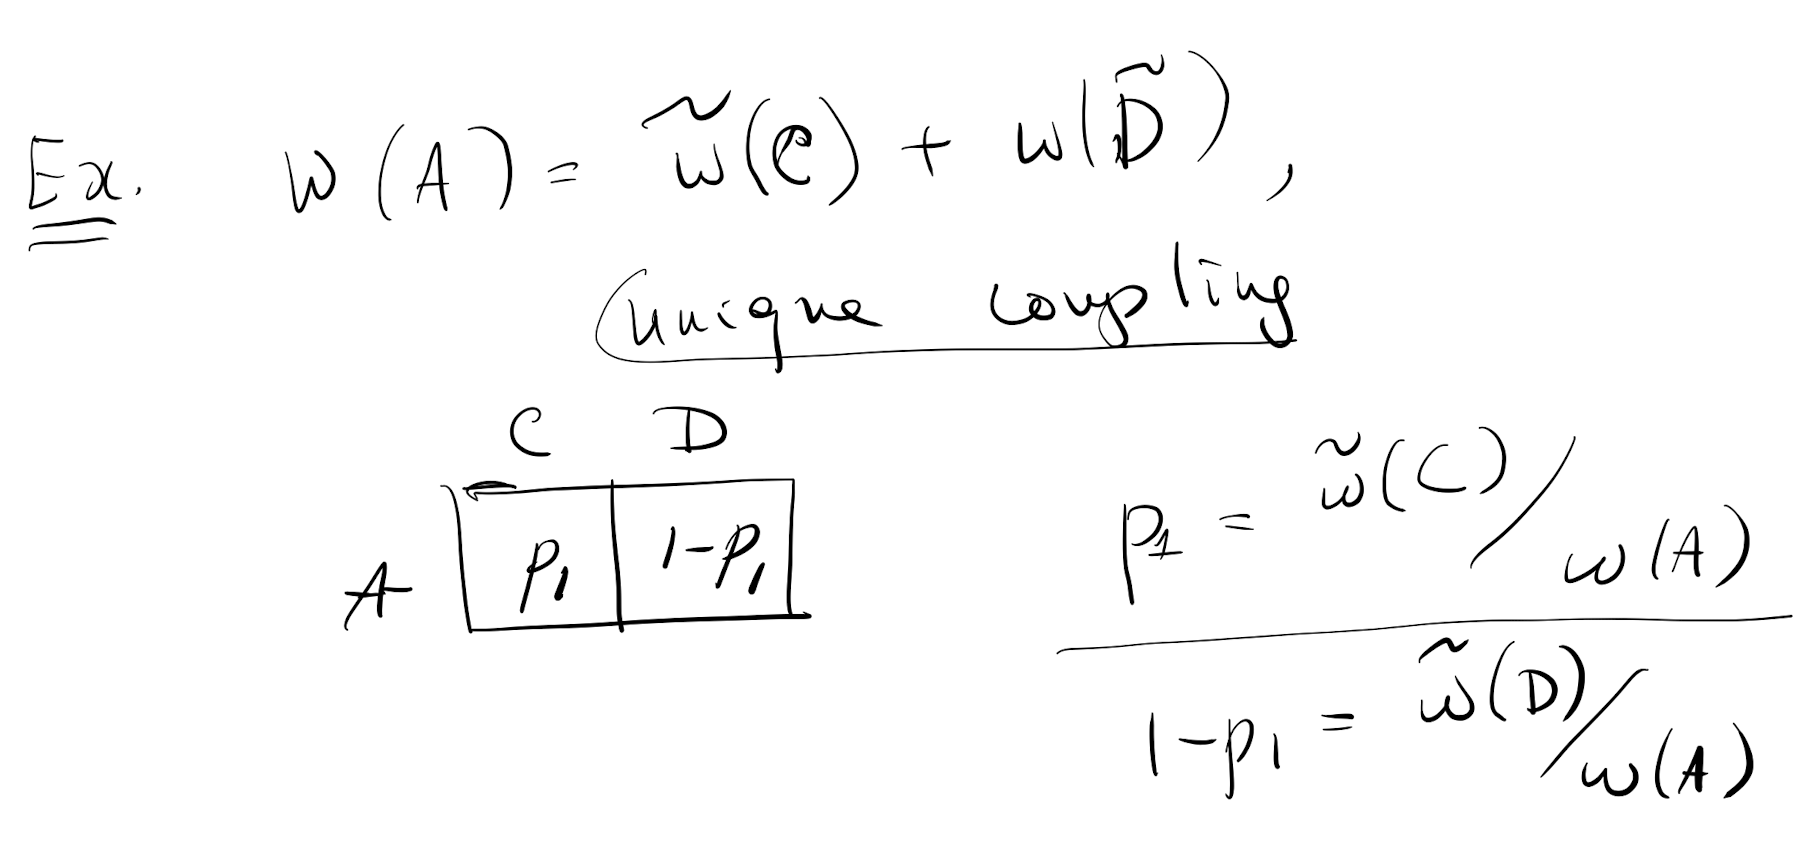 Ex. W(A) = w̃(C) + w(D̃),
unique coupling
C D
A p₁ 1-p₁
p₁ = w̃(C)/w(A)
1-p₁ = w̃(D)/w(A)